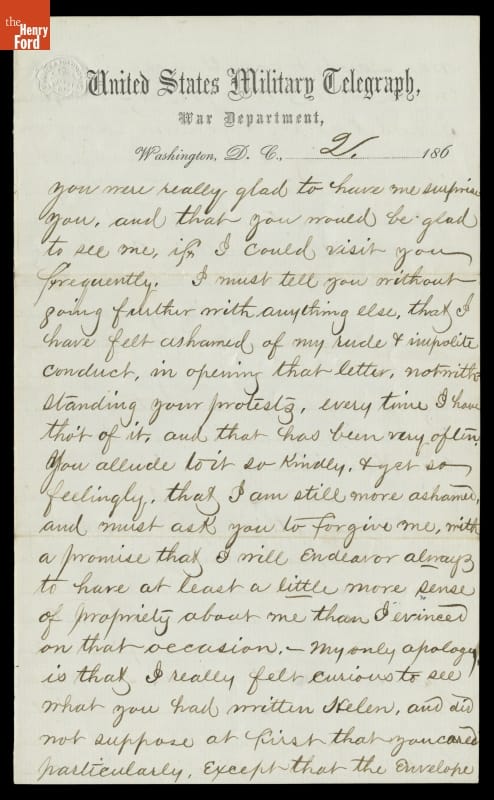 the
Henry
Ford
United States Military Telegraph,
War Department,
Washington, D. C., 2. 186
you were really glad to have me surprise
you, and that you would be glad
to see me, if I could visit you
frequently. I must tell you without
going further with anything else, that I
have felt ashamed of my rude & impolite
conduct, in opening that letter, notwith-
standing your protests, every time I have
tho't of it, and that has been very often.
You allude to it so kindly, & yet so
feelingly, that I am still more ashamed,
and must ask you to forgive me, with
a promise that I will endeavor always
to have at least a little more sense
of propriety about me than I evinced
on that occasion, – My only apology
is that I really felt curious to see
what you had written Helen, and did
not suppose at first that you cared
particularly, except that the envelope